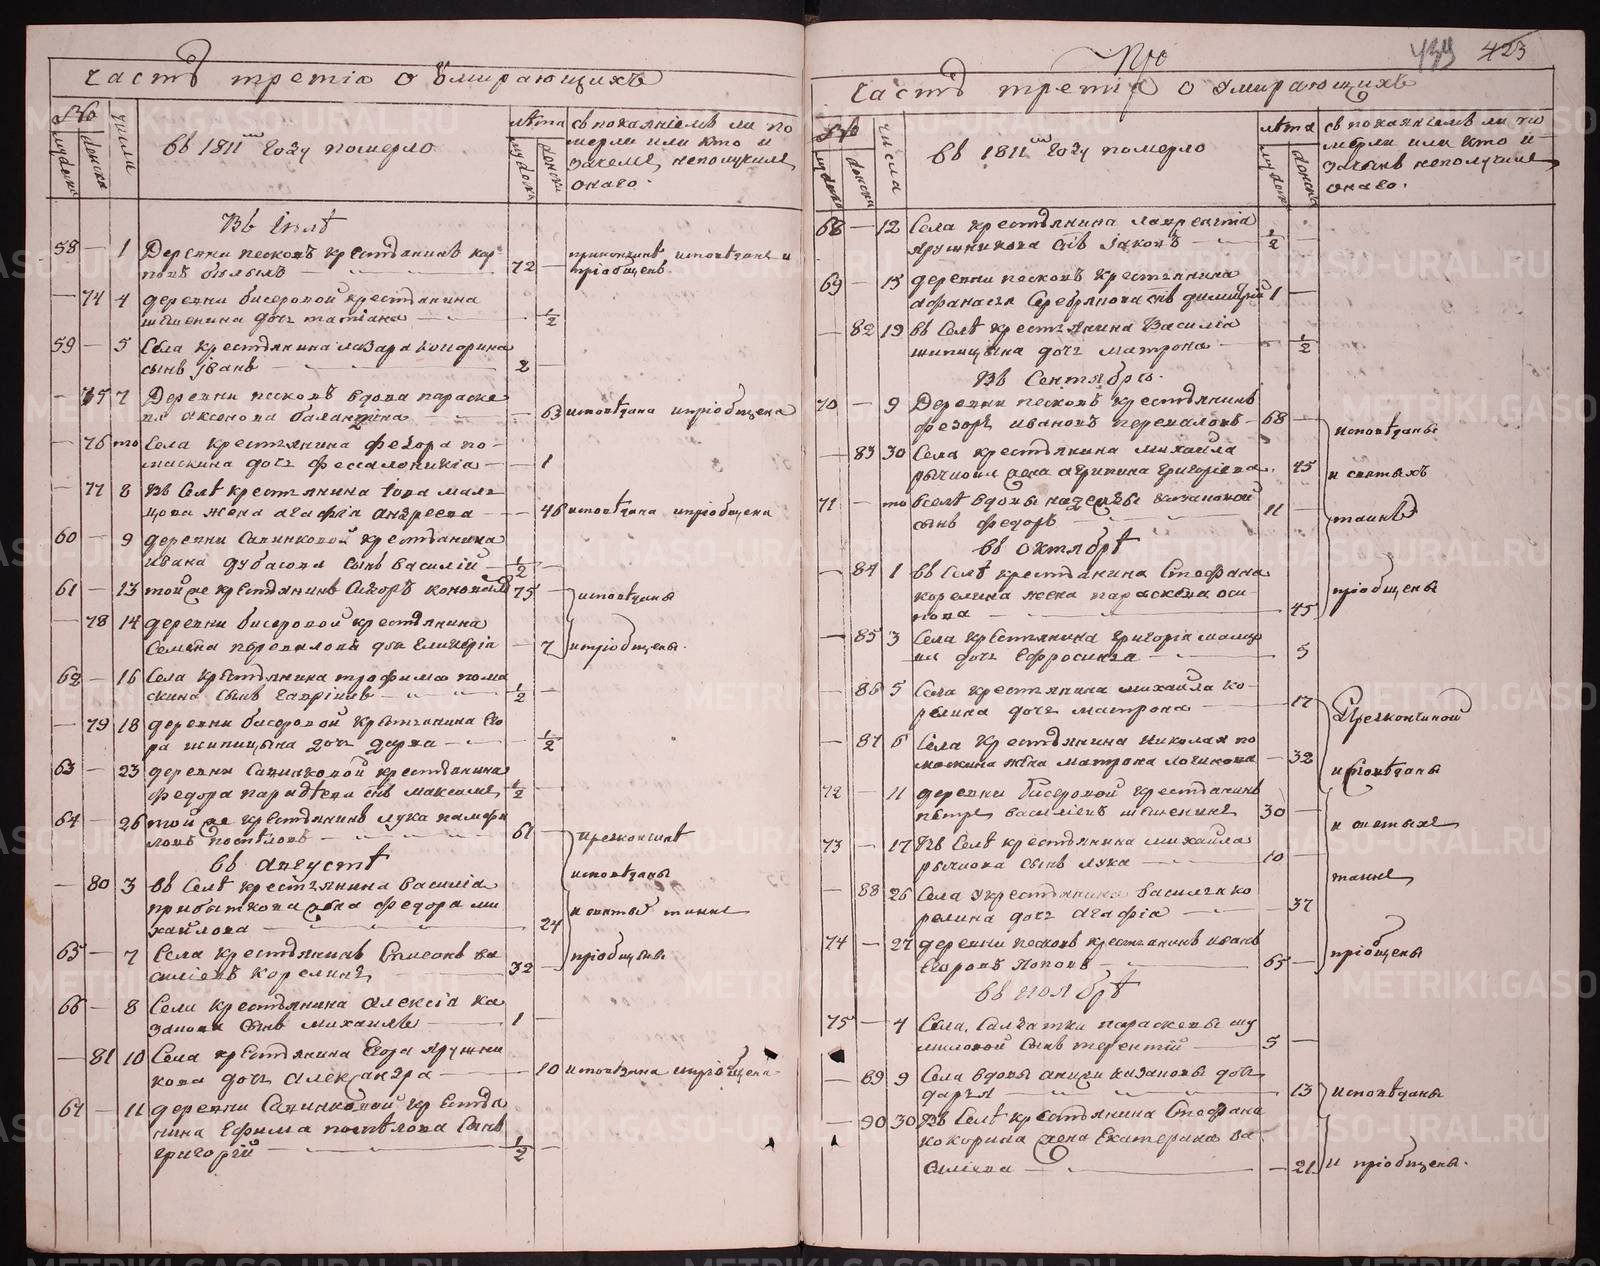 часть третiя о умирающихъ
въ 1811мъ году померло
числа
лѣта
мужеска
женска
съ покаянiемъ ли по
мерли или кто и
зачемъ неполучилъ
онаго.
Въ iюлѣ
58 — 1 Деревни песковъ крестьянинъ кар
72 —
74 4 деревни бисеровой крестьянина
дочь татiана 1/2
59 — 5 Села крестьянина лазаря кокорина
сынъ iванъ 2 —
75 7 Деревни песковъ вдова параске
ва аксенова баландина — 63 исповѣдана ипрiобщена
76 то Села крестьянина федора по-
маскина дочь фесалоникiа — 1
77 8 Въ Селѣ крестьянина
цова жена агафiа андреева — 46 исповѣдана ипрiобщена
60 — 9 деревни Савинковой крестьянина
ивана дубасова сынъ василiй 1/2 —
61 — 13 тойже крестьянинъ 75 —
исповѣданы
78 14 деревни бисеровой крестьянина
Семена перевалова дочь — 7 ипрiобщены.
62 — 16 Села крестьянина трофима пома
скина сынъ гаврiилъ 1/2 —
79 18 деревни бисеровой крестьянина его
ра шипицына дочь дарья 1/2
63 — 23 деревни Савинковой крестьянина
федора снъ максимъ 1/2 —
64 — 26 тойже крестьянинъ лука памфи
ловъ 61 —
въ августѣ
80 3 въ Селѣ крестьянина василiа
прибыткова жена федора ми
хайлова 24
исповѣданы
65 — 7 Села крестьянинъ Симеонъ ва
силiевъ корелинъ 32 —
прiобщены
66 — 8 Села крестьянина алексiа ка
закова сынъ михаилъ 1 —
81 10 Села крестьянина Егора ярушни
кова дочь александра — 10 исповѣдана ипрiобщена
67 — 11 деревни Савинковой крестья
нина Ефима сынъ
григорiй 1/2 —
423
часть третiя о умирающихъ
въ 1811мъ году померло
числа
лѣта
мужеска
женска
съ покаянiемъ ли по
мерли или кто и
зачемъ неполучилъ
онаго.
68 — 12 Села крестьянина лаврентiа
ярушникова сiнъ iаковъ 1/2 —
69 — 15 деревни песковъ крестьянина
афанасья серебрякова снъ димитрiй 1 —
82 19 въ Селѣ крестьянина Василiа
шипицына дочь матрона — 1/2
Въ Сентябрѣ.
70 — 9 Деревни песковъ крестьянинъ
федоръ ивановъ перваловъ 68 —
исповѣданы
83 30 Села крестьянина михаила
жена агрипина григорiева. 45
и святыхъ
71 — то вселѣ вдовы надежды казаковой
сынъ федоръ 11 —
таинъ
въ октябрѣ
84 1 въ Селѣ крестьянина Стефана
корелина жена параскева оси-
пова 45
прiобщены
85 3 Села крестьянина григорiя
дочь Ефросинiа 5
86 5 Села крестьянина михаила ко-
релина дочь матрона 17
87 6 Села крестьянина николая по
москина жена матрона логинова — 32
исповѣданы
72 — 11 деревни бисеровой крестьянинъ
петръ василiевъ 30 —
и святыхъ
73 — 17 Въ Селѣ крестьянина михаила
сынъ лука 10 —
таинъ
88 26 Села крестьянина василья ко
релина дочь агафiа 37
74 — 27 деревни песковъ крестьянинъ иванъ
Егоровъ поповъ 65 —
прiобщены
въ ноябрѣ
75 — 4 Села, Салдатки параскевы шу
миловой сынъ терентiй 5 —
89 9 Села вдовы казаковы дочь
дарья 13
исповѣданы
90 30 Въ Селѣ крестьянина Стефана
кокорина жена Екатерина ва
силiева — 21 и прiобщены.
METRIKI.GASO-URAL.RU